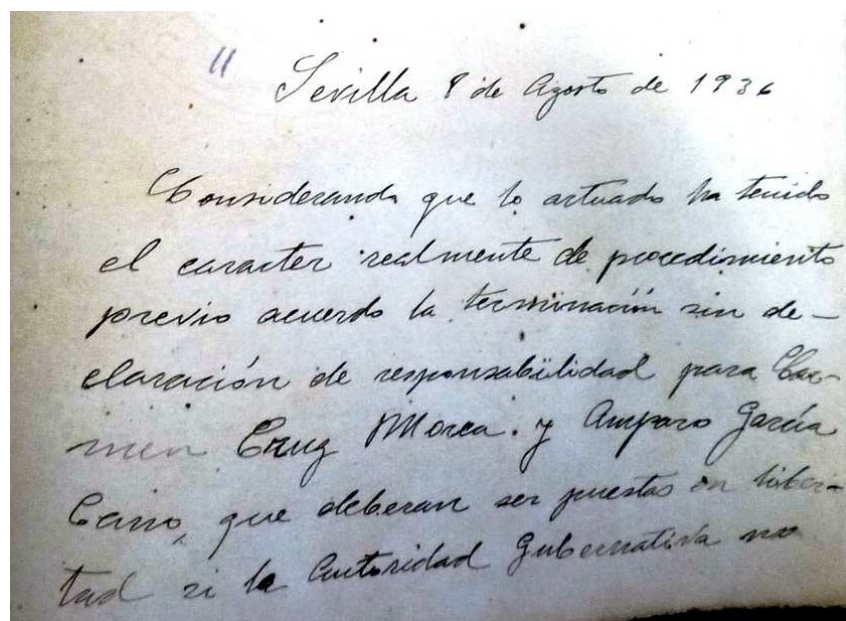 11
Sevilla 8 de Agosto de 1936
Considerando que lo actuado ha tenido
el caracter realmente de procedimiento
previo acuerdo la terminación sin de-
claración de responsabilidad para Car-
men Cruz Morea. y Amparo García
Cano, que deberan ser puestas en liber-
tad si la Autoridad Gubernativa no